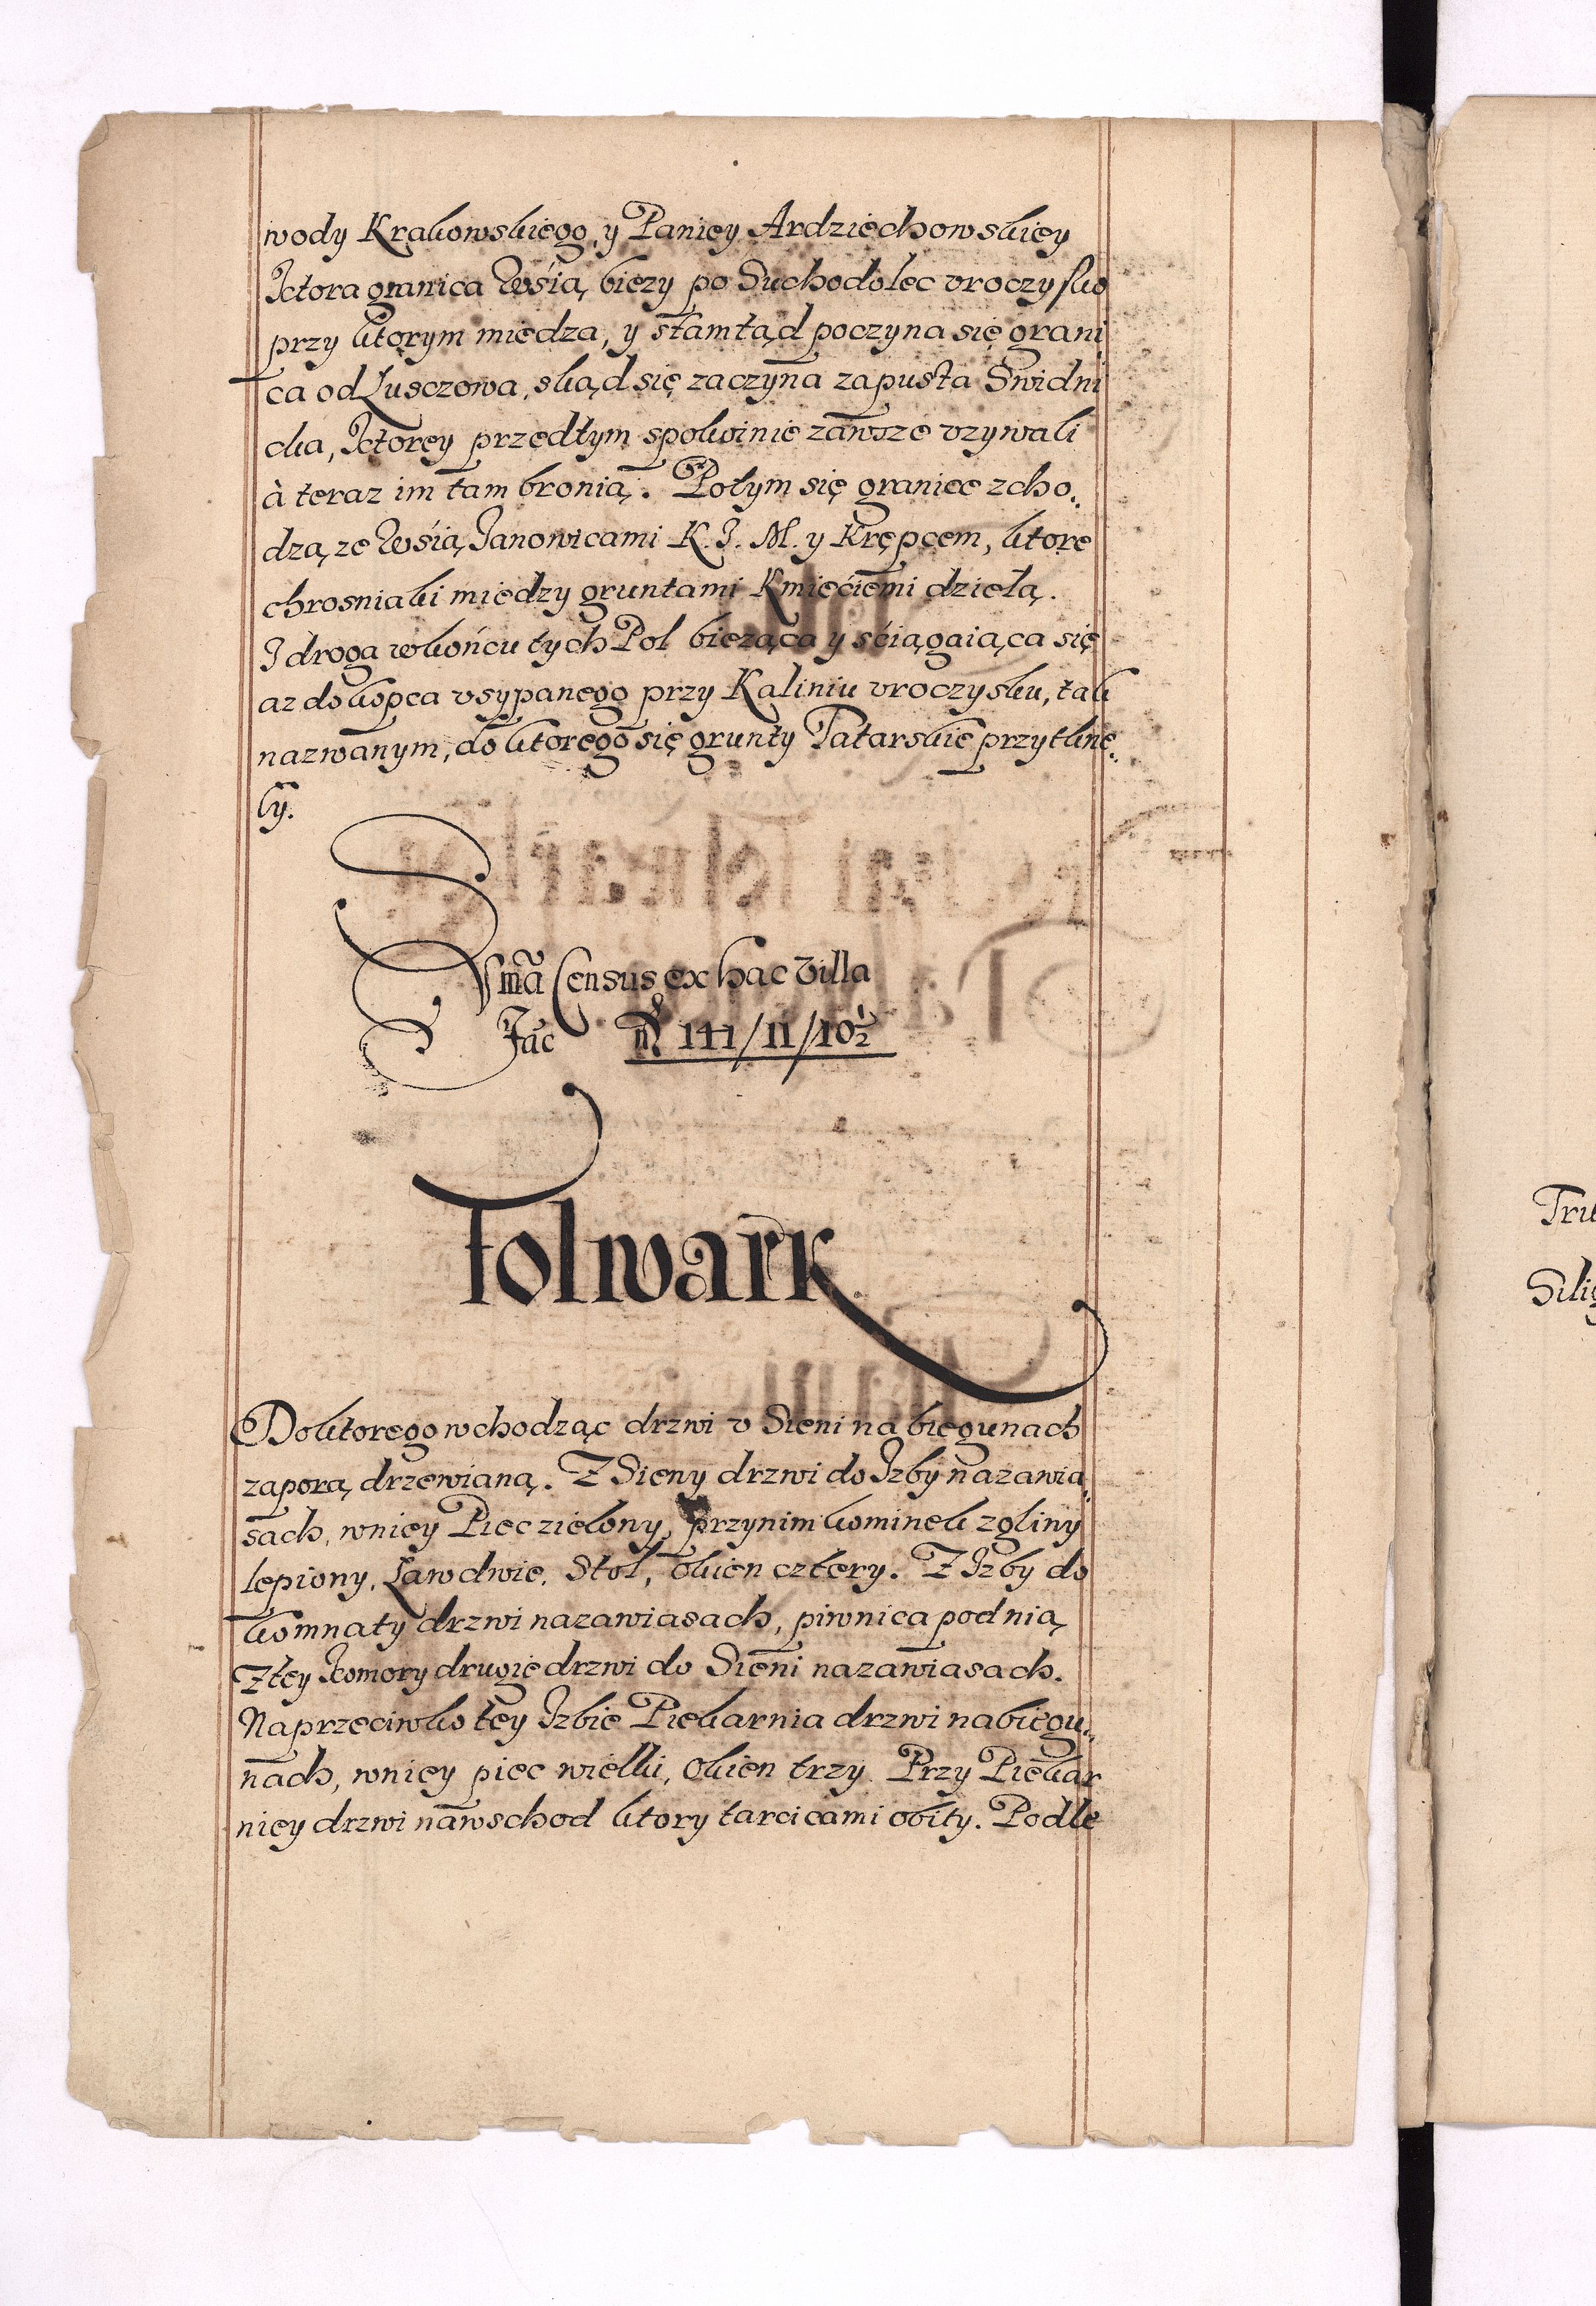 wody Krakowskiego, y Paniey Ardziechowskiey
Ktora granica Wśią bieży po Suchodolec vroczysko
przy ktorym miedza, y stamtąd poczyna się grani
ca od Lusczowa, skąd się zaczyna zapusta Swidni
cka, Ktorey przedtym spokoinie zawsze vzywali
à teraz im tam bronią. Potym się granice zcho„
dzą ze Wśią Janowicami K. J. M. y Krępcem, ktore
chrosniaki miedzy gruntami Kmięciemi dzielą.
I droga wkońcu tych Pol bieząca y śćiągaiąca się
az do kopca vsypanego przy Kaliniu vroczysku, tak
nazwanym, do ktorego się grunty Tatarskie przytkne„
ły.
Sm̃a Census ex hac Villa
Fac m̃ 141/11/10½
Folwark
Do ktorego wchodząc drzwi v Sieni na biegunach
zaporą drzewianą. Z Sieny drzwi do Izby nazawia„
sach, wniey Piec zielony, przynim kominek zgliny
lepiony, Law dwie, Stol, Okien cztery. Z Izby do
komnaty drzwi nazawiasach, piwnica pod nią
Ztey Komory drugie drzwi do Sieni nazawiasach.
Naprzeciwko tey Izbie Piekarnia drzwi nabiegu„
nach, wniey piec wielki, Okien trzy. Przy Piekar
niey drzwi nawschod ktory tarcicami obity. Podle
Tri
Sili